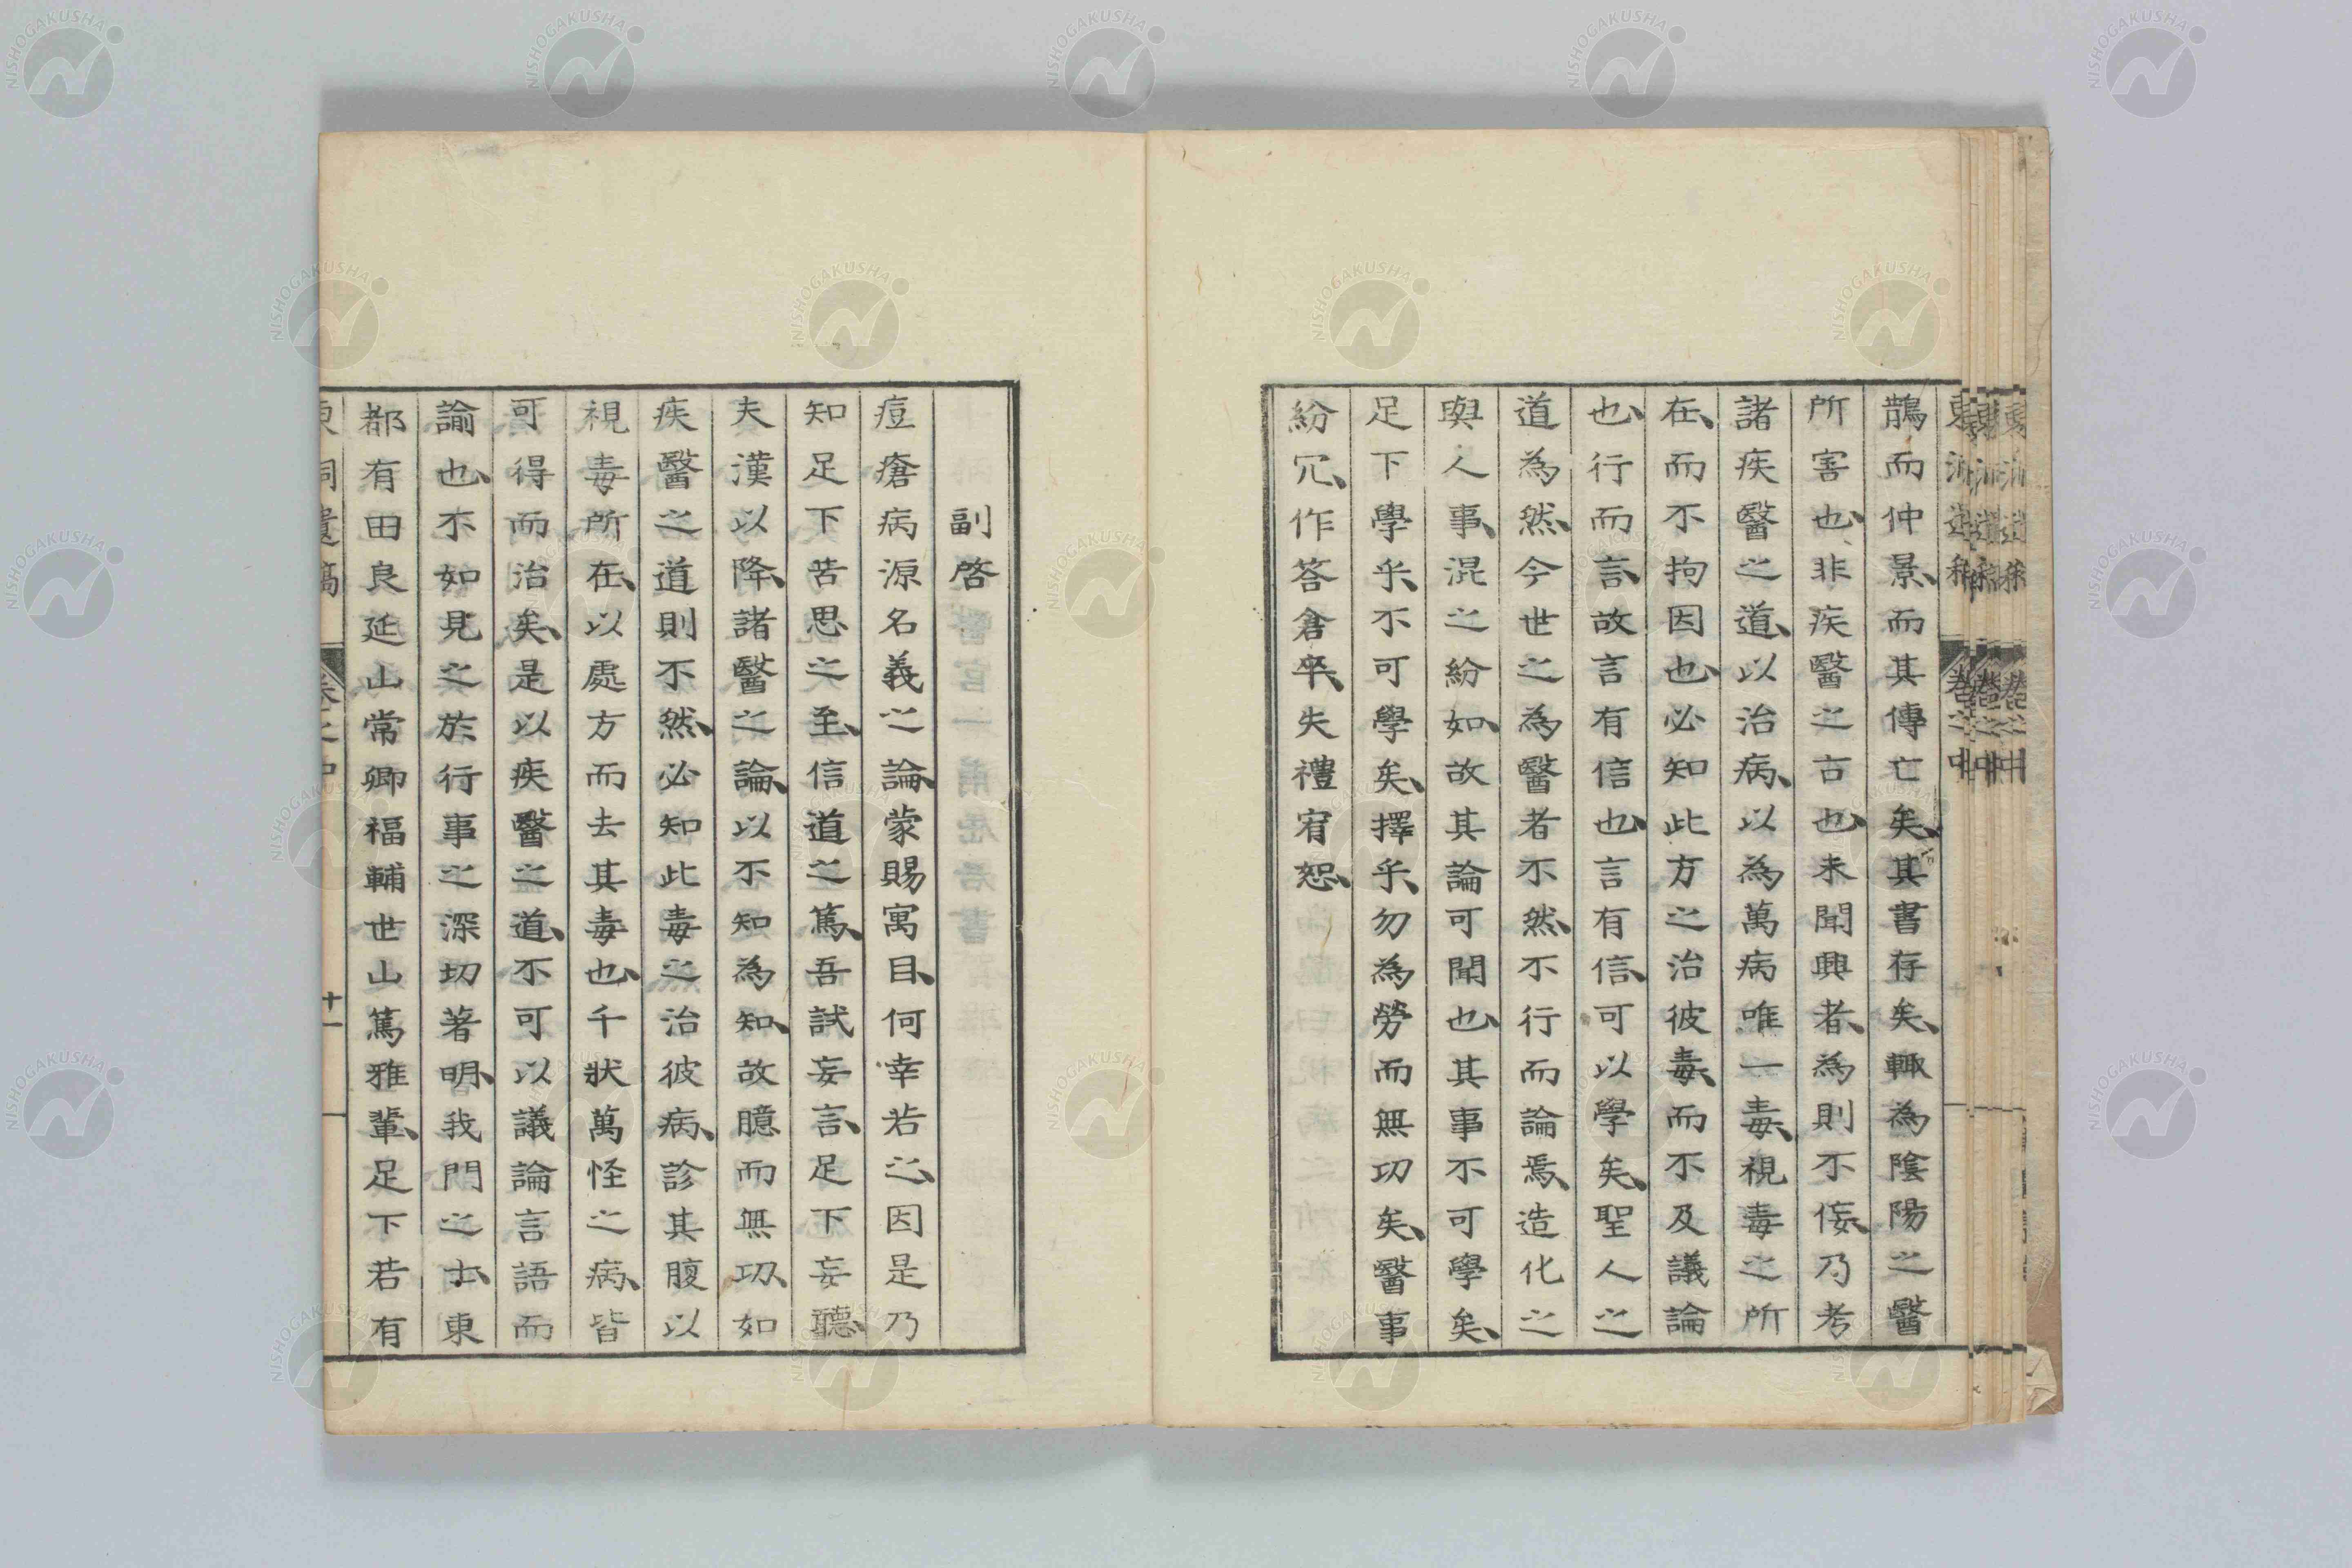 鵲而仲景、而其傳亡矣、其書存矣、輙為陰陽之醫
所害也、非疾醫之古也、未聞興者、為則不佞、乃考
諸疾醫之道、以治病、以為萬病唯一毒、視毒之所
在、而不拘因也、必知此方之治彼毒、而不及議論
也、行而言、故言有信也、言有信、可以學矣、聖人之
道為然、今世之為醫者不然、不行而論焉、造化之
與人事、混之紛如、故其論可聞也、其事不可學矣、
足下學乎、不可學矣、擇乎、勿為勞而無功矣、醫事
紛冗、作答倉卒、失禮宥恕、
副啓
痘瘡病源名義之論、蒙賜寓目、何幸若之、因是乃
知足下苦思之至、信道之篤、吾試妄言、足下妄聽、
夫漢以降、諸醫之論、以不知為知、故臆而無功、如
疾醫之道則不然、必知此毒之治彼病、診其腹以
視毒所在、以處方而去其毒也、千狀萬怪之病、皆
可得而治矣、是以疾醫之道、不可以議論言語而
諭也、不如見之於行事之深切著明、我門之士、東
都有田良延山常卿福輔世山篤雅輩、足下若有
東洞遺稿 卷之中 十一
NISHOGAKUSHA